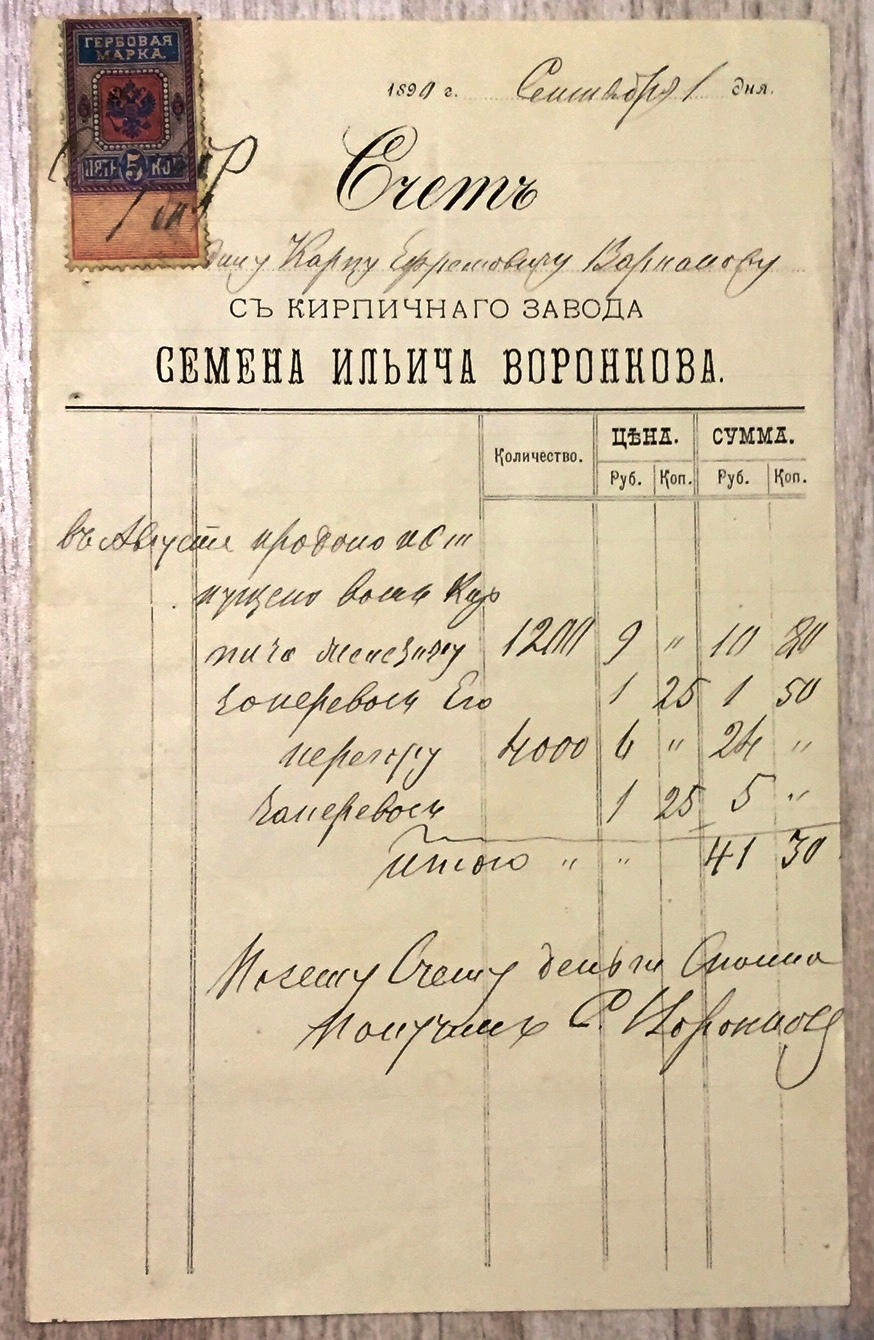 ГЕРБОВАЯ
МАРКА.
ПЯТЬ 5 КОП
1890 г. Сентября 1 дня.
Счетъ
Карпу Ефремовичу
СЪ КИРПИЧНАГО ЗАВОДА
СЕМЕНА ИЛЬИЧА ВОРОНКОВА.
Количество. ЦѢНА. СУММА.
Руб. Коп. Руб. Коп.
въ Августе продоно
пущено вамъ Кир
пича 1200 9 " 10 80
заперевоск Его 1 25 1 50
4000 6 " 24 "
заперевоск 1 25 5 "
Итого " " 41 30
Посему Счету деньги Сполна
Получилъ С. Воронковъ